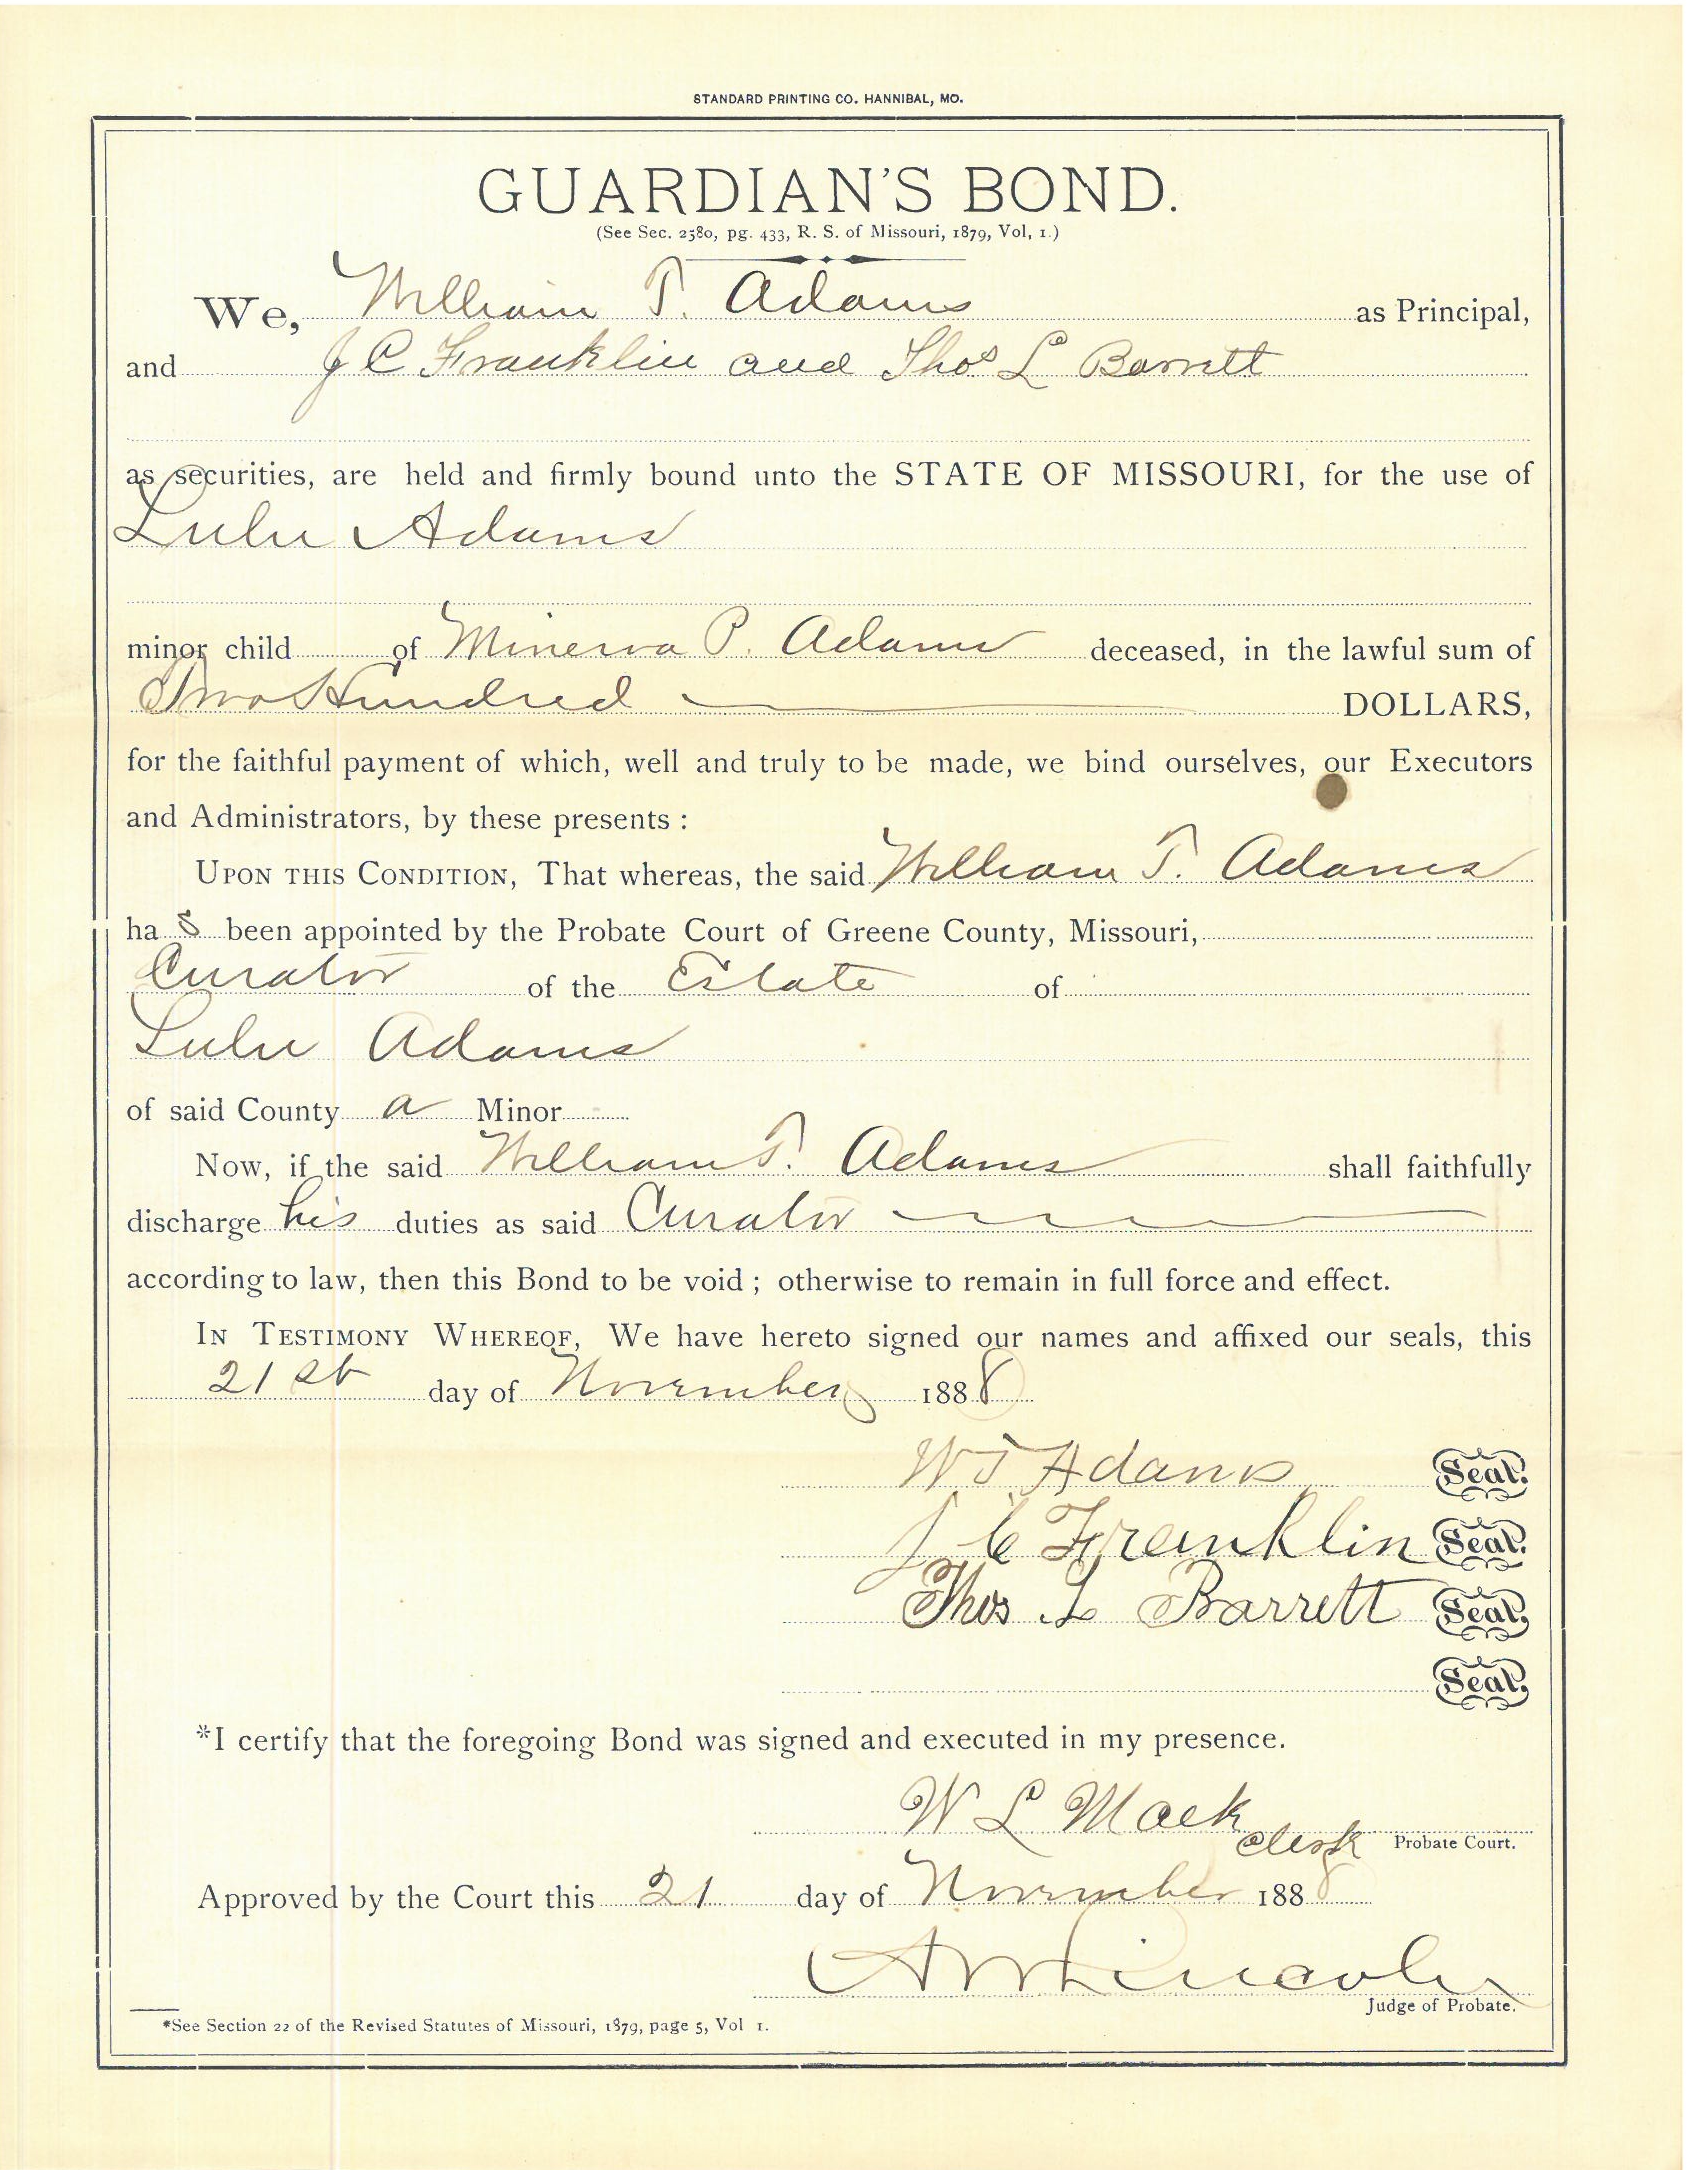 STANDARD PRINTING CO. HANNIBAL, MO.
GUARDIAN'S BOND.
(See Sec. 2580, pg. 433, R. S. of Missouri, 1879, Vol, 1.)
We, William T. Adams as Principal,
and J C Franklin and Thos L Barrett
as securities, are held and firmly bound unto the STATE OF MISSOURI, for the use of
Lulu Adams
minor child of Minerva P. Adams deceased, in the lawful sum of
Two Hundred DOLLARS,
for the faithful payment of which, well and truly to be made, we bind ourselves, our Executors
and Administrators, by these presents :
UPON THIS CONDITION, That whereas, the said William T. Adams
ha s been appointed by the Probate Court of Greene County, Missouri,
Curator of the Estate of
Lulu Adams
of said County a Minor
Now, if the said William T. Adams shall faithfully
discharge his duties as said Curator
according to law, then this Bond to be void ; otherwise to remain in full force and effect.
IN TESTIMONY WHEREOF, We have hereto signed our names and affixed our seals, this
21st day of November 1888
W T Adams Seal.
J C Franklin Seal.
Thos L Barrett Seal.
Seal.
*I certify that the foregoing Bond was signed and executed in my presence.
W L Mack Clerk Probate Court.
Approved by the Court this 21 day of November 1888
A W Lincoln
Judge of Probate.
*See Section 22 of the Revised Statutes of Missouri, 1879, page 5, Vol 1.